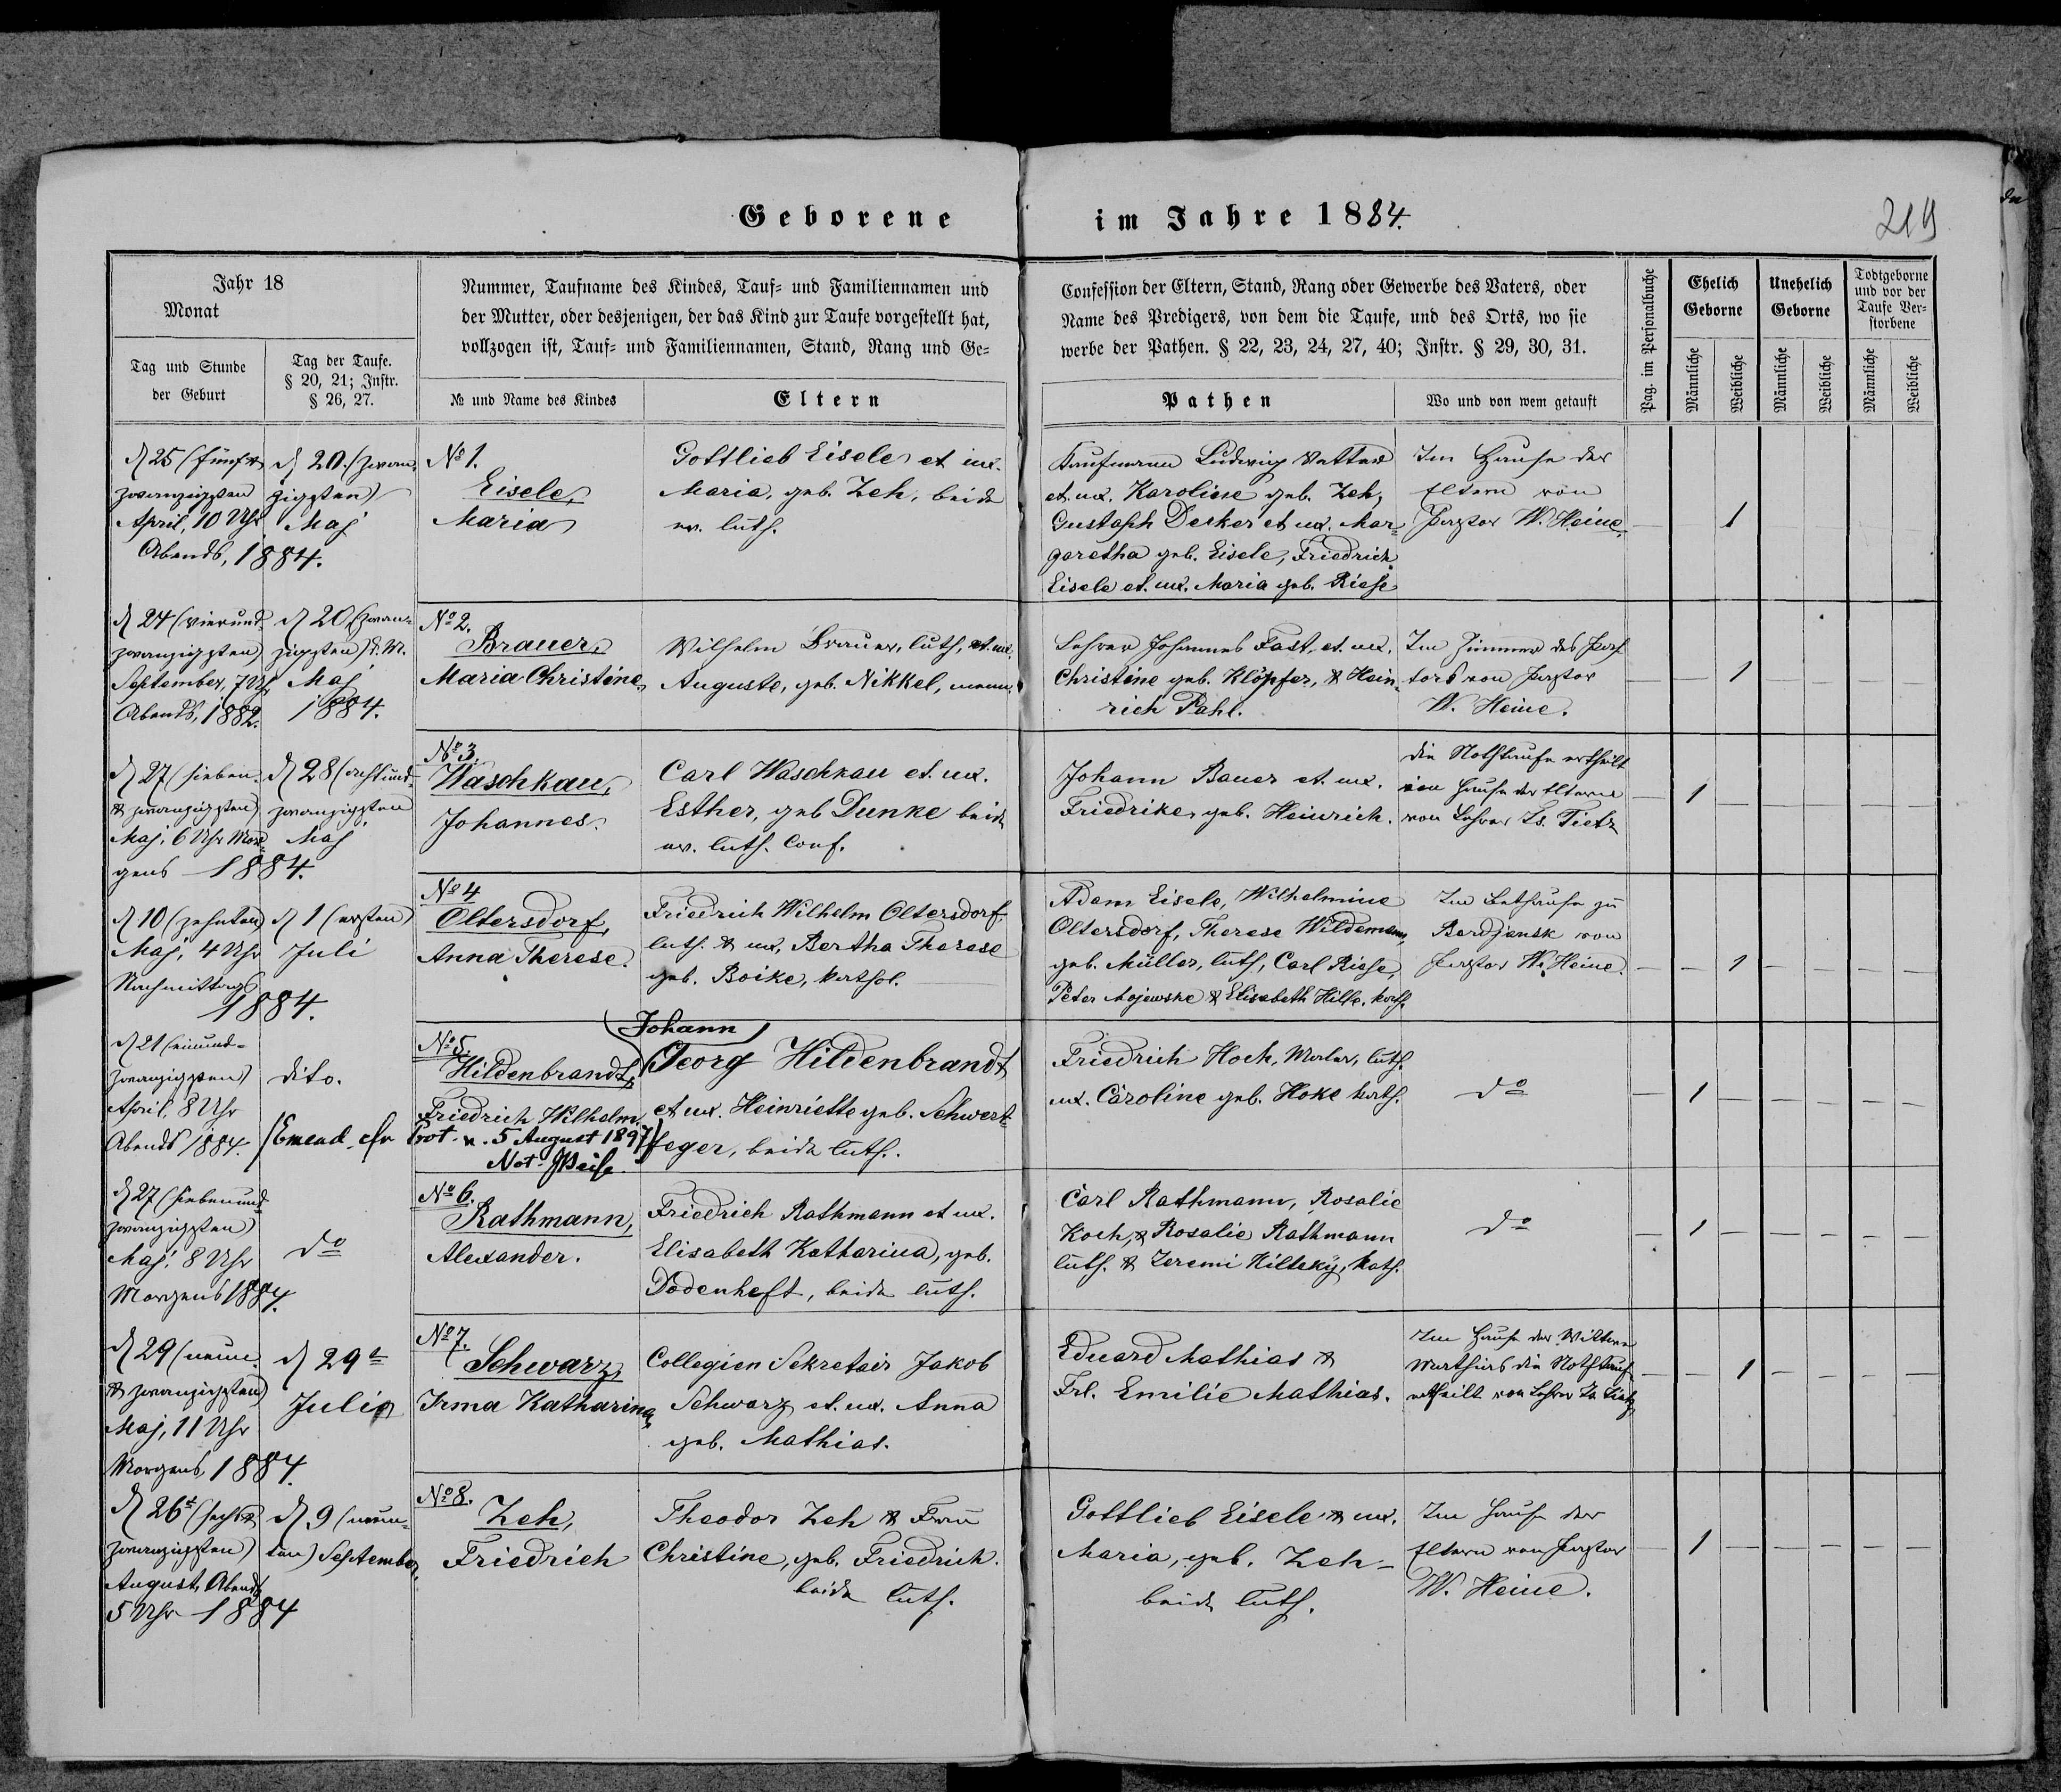 Geborene im Jahre 1884.
219
Jahr 18
Monat
Tag und Stunde
der Geburt
Tag der Taufe.
§ 20, 21; Instr.
§ 26, 27.
Nummer, Taufname des Kindes, Tauf- und Familiennamen und
der Mutter, oder desjenigen, der das Kind zur Taufe vorgestellt hat,
vollzogen ist, Tauf- und Familiennamen, Stand, Rang und Ge-
№ und Name des Kindes
Eltern
Confession der Eltern, Stand, Rang oder Gewerbe des Vaters, oder
Name des Predigers, von dem die Taufe, und des Orts, wo sie
werbe der Pathen. § 22, 23, 24, 27, 40; Instr. § 29, 30, 31.
Pathen
Wo und von wem getauft
Pag. im Personalbuche
Ehelich
Geborne
Unehelich
Geborne
Todtgeborne
und vor der
Taufe Ver-
storbene
Männliche
Weibliche
Männliche
Weibliche
Männliche
Weibliche
d 25 (fünf &
zwanzigsten
April, 10 Uhr
Abends, 1884.
d 20. (zwan-
zigsten)
Maj
№ 1.
Eisele,
Maria
Gottlieb Eisele et ux.
Maria, geb. Zeh, beide
ev. luth.
Kaufmann Ludwig Vatter
et. ux. Karoline geb. Zeh,
Gustaph Decker et ux. Mar-
garetha geb. Eisele, Friedrich
Eisele et. ux. Maria geb. Riese
Im Hause der
Eltern von
Pastor W. Heine.
1
d 24 (vierund-
zwanzigsten)
September, 7 Uhr
Abends, 1882.
d 20 (zwan-
zigsten) d. M.
Maj
1884.
№ 2.
Brauer,
Maria Christine,
Wilhelm Brauer, luth, et. ux.
Auguste, geb. Nikkel, menn.
Lehrer Johannes Fast, et. ux.
Christine geb. Klöpfer, & Hein-
rich Pahl.
Im Zimmer des Pas-
tors von Pastor
W. Heine.
1
d 27 (sieben-
& zwanzigsten)
Maj, 6 Uhr Mor-
gens 1884.
d 28 (achtund-
zwanzigsten
Maj
№ 3.
Waschkau,
Johannes.
Carl Waschkau et. ux.
Esther, geb Dunke beide
ev. luth. Conf.
Johann Bauer et. ux.
Friedrike, geb. Heinrich.
die Nothtaufe ertheilt
im Hause der Eltern
von Lehrer Is. Tietz
1
d 10 (zehnten)
Maj, 4 Uhr
Nachmittags
1884.
d 1 (ersten)
Juli
№ 4
Oltersdorf,
Anna Therese.
Friedrich Wilhelm Oltersdorf,
luth. & ux, Bertha Therese
geb. Boike, kathol.
Adam Eisele, Wilhelmine
Oltersdorf, Therese Wildemann,
geb. Müller, luth, Carl Riese,
Peter Majewske & Elisabeth Hilse, kath.
Im Bethause zu
Berdjansk von
Pastor W. Heine.
1
d 21 (einund-
zwanzigsten)
April, 8 Uhr
Abends 1884.
dito.
№ 5
Hildenbrandt,
Friedrich Wilhelm.
(Emend. cfr Prot. v. 5 August 1897)
Johann
Georg Hildenbrandt
et ux. Heinriette geb. Schwert-
feger, beide luth.
Friedrich Hoch, Maler, luth.
ux. Caroline geb. Hoke kath.
do
1
d 27 (siebenund-
zwanzigsten)
Maj, 8 Uhr
Morgens 1884.
do
№ 6.
Rathmann,
Alexander.
Friedrich Rathmann et ux.
Elisabeth Katharina, geb.
Dodenheft, beide luth.
Carl Rathmann, Rosalie
Koch, & Rosalie Rathmann
luth. & Jeremi Hilteky, kath.
do
1
d 29 (neun-
& zwanzigsten)
Maj, 11 Uhr
Morgens, 1884
d 29t
Julie
№ 7.
Schwarz,
Irma Katharina,
Collegien Sekretair Jakob
Schwarz et. ux. Anna
geb. Mathias.
Eduard Mathias &
Frl. Emilie Mathias.
Im Hause der Wittwe
Mathias die Nothtaufe
ertheilt von Lehrer Is. Tietz
1
d 26t (sechs &
zwanzigsten)
August, Abends
5 Uhr 1884
d 9 (neun-
ten) September
№ 8.
Zeh,
Friedrich
Theodor Zeh & Frau
Christine, geb. Friedrich.
beide luth.
Gottlieb Eisele & ux.
Maria, geb. Zeh
beide luth.
Im Hause der
Eltern von Pastor
W. Heine.
1